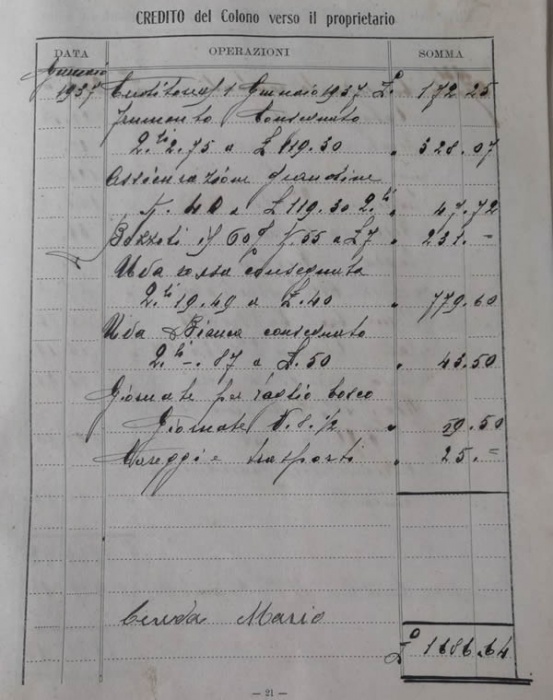 CREDITO del Colono verso il proprietario
DATA OPERAZIONI SOMMA
Gennaio
1937 1 Gennaio 1937 £. 172 25
Frumento Consegnato
2.li 2.75 a £ 119.30 " 328.07
Assicurazione grandine
a £ 119.30 " 47.72
Bozzoli 55 a £ 7 " 231.=
Uva rossa consegnata
2.li 19.49 a £. 40 " 779.60
Uva Bianca consegnato
2.li -. 87 a £. 50 " 43.50
Giornate per taglio bosco
Giornate N. 8. 1/2 " 59.50
e trasporti " 25.=
Cereda Mario
£ 1686.64
— 21 —